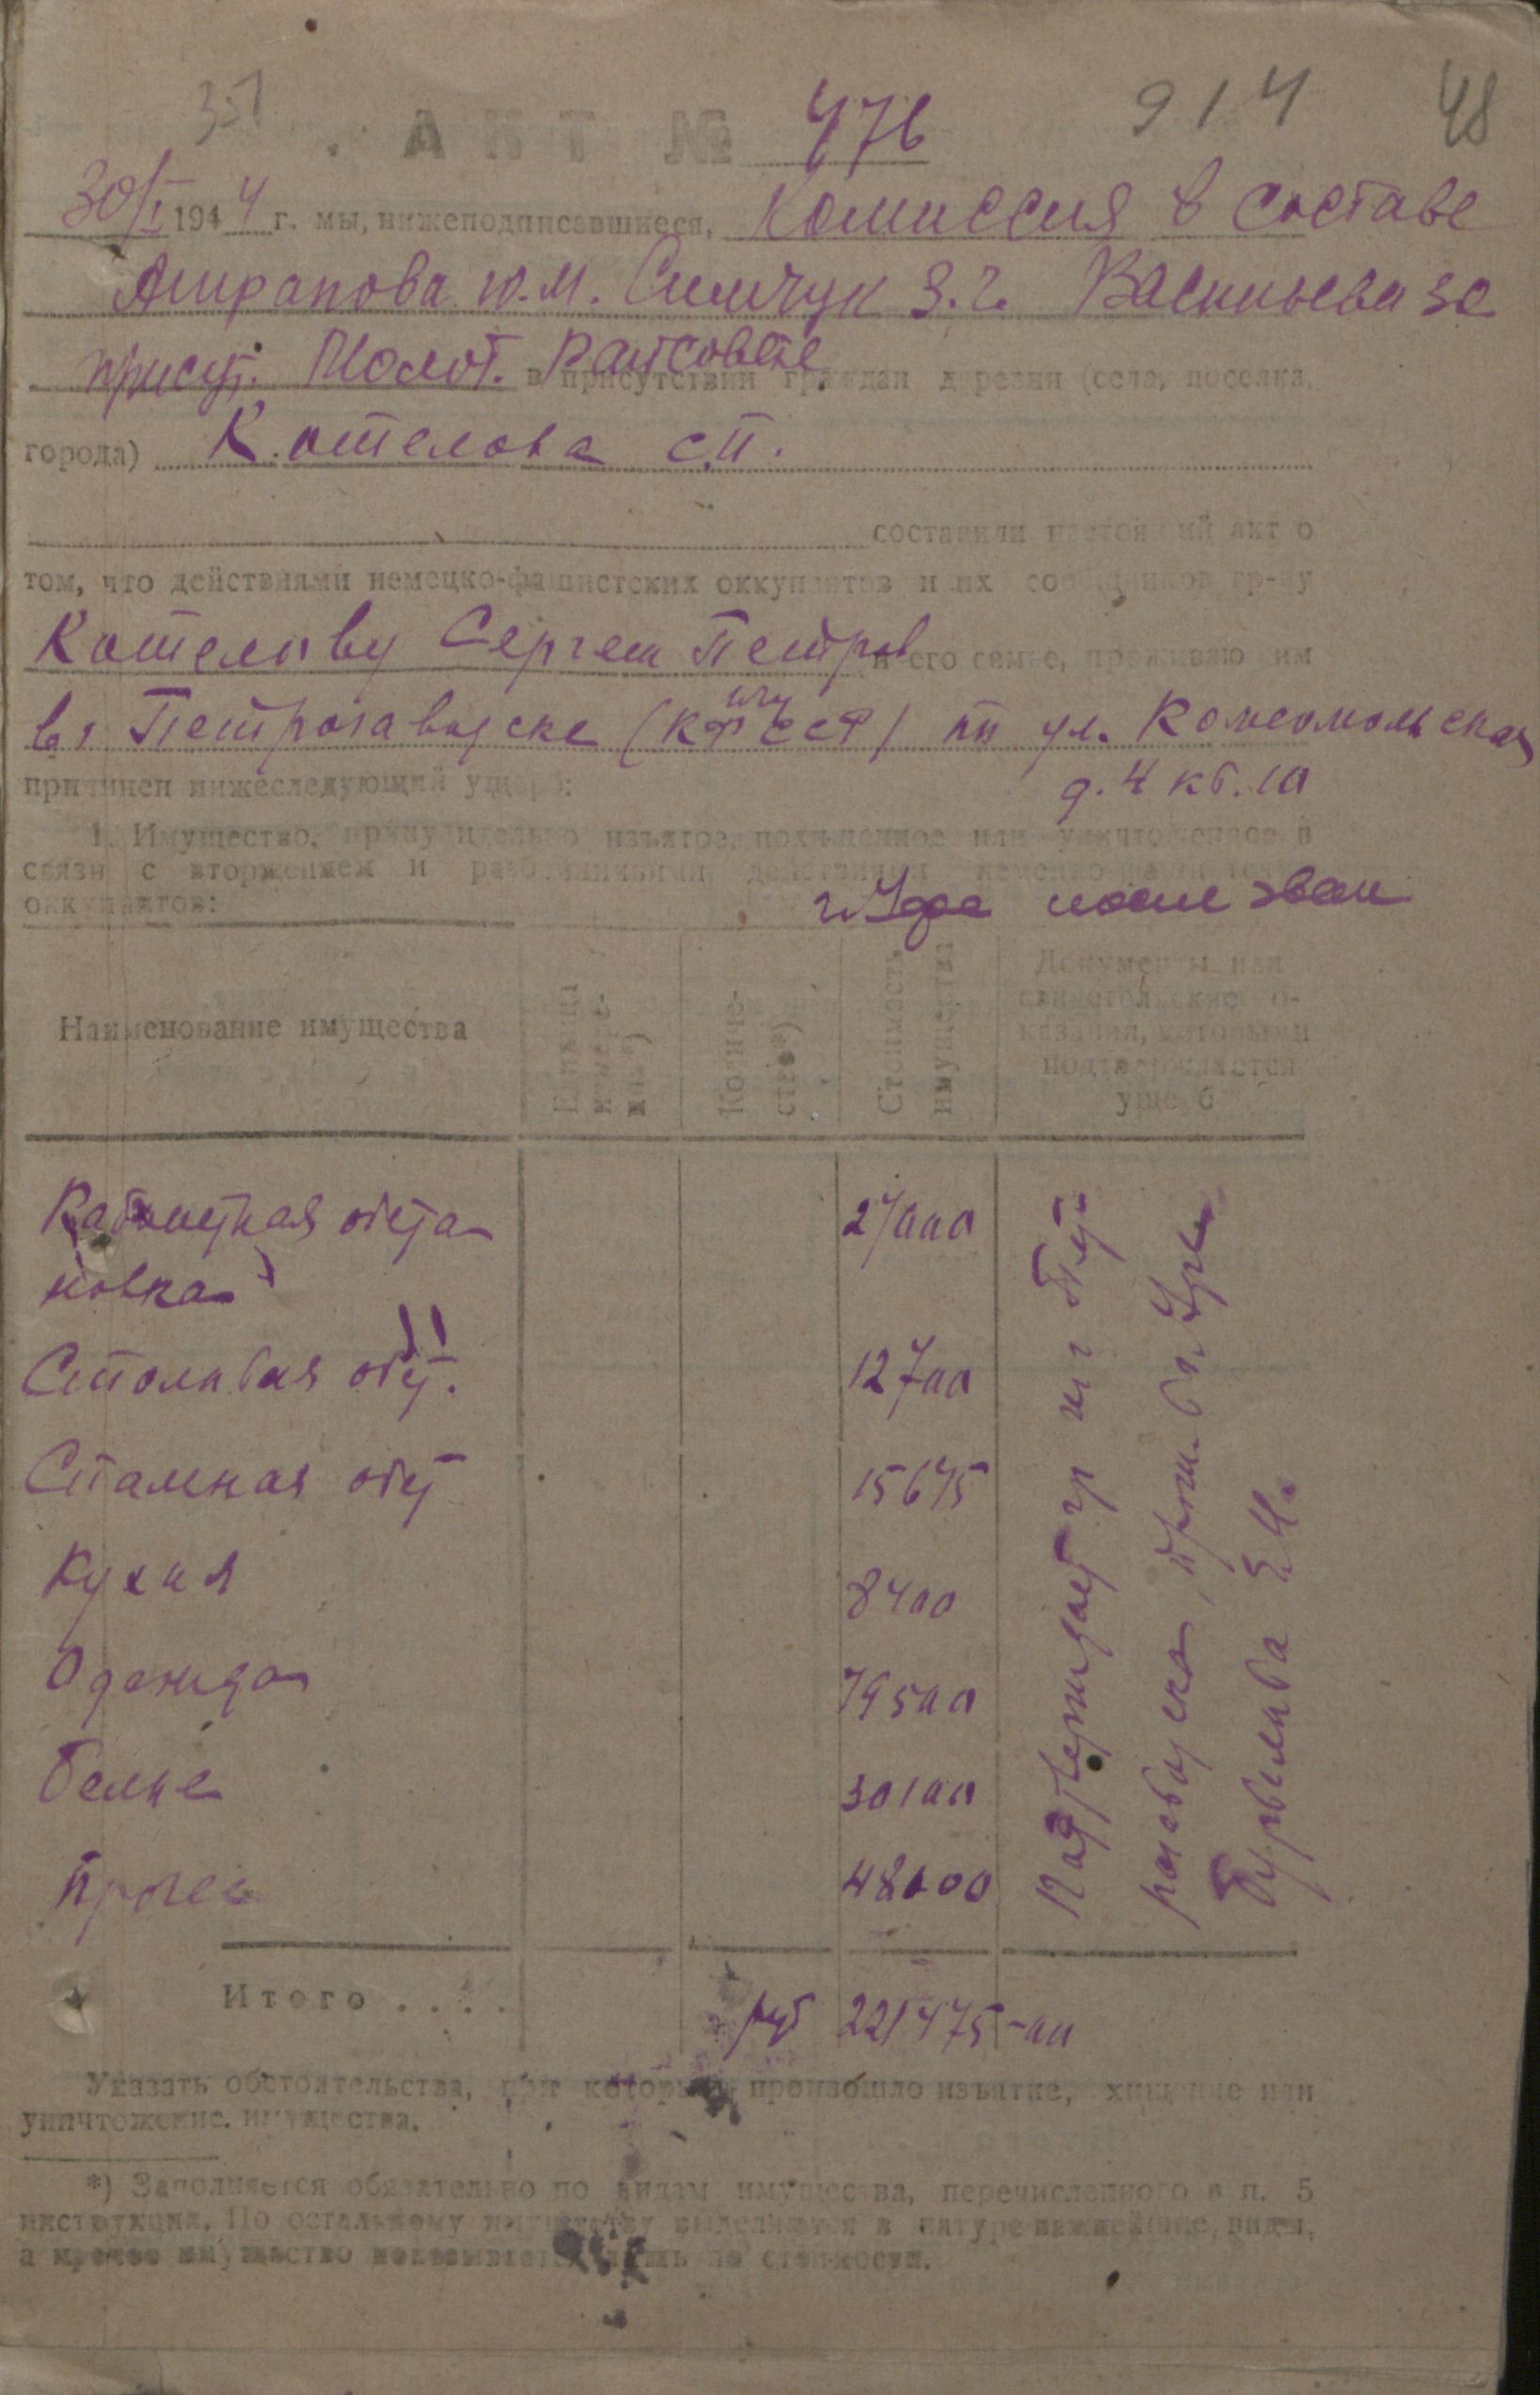 351 914 48
АКТ № 476
30/I 1944 г. мы, нижеподписавшиеся, Комиссия в составе
Ю.М. Симчук З.Г. Васильева
присут. Молот. Райсовете в присутствии граждан деревни (села, поселка,
города) Котелова С.П.
составили настоящий акт о
том, что действиями немецко-фашистских оккупантов и их сообщников гр-ну
Котелову Сергею Петров и его семье, проживающим
ичу
в г Петрозаводске (КФССР) по ул. Комсомольская
причинен нижеследующий ущерб: д. 4 кв. 10
1. Имущество, принудительно изъятое, похищенное или уничтоженное в
связи с вторжением и разбойничьими действиями немецко-фашистских
оккупантов: г. Уфа после эвак
Наименование имущества
Единица
измере-
ния*)
Количе-
ство*)
Стоимость
имущества
Документы или
свидетельские по-
казания, которыми
подтверждается
ущерб
Кабинетная обста 27000
новка
Столовая обст. 12700
Спальная обст 15675
Кухня 8400
Одежда 79500
Белье 30100
Прочее 48000
Подтверждает гр из г Пет
розаводска, прож. в г. Уфе
Итого . . . . руб 221475-00
Указать обстоятельства, при которых произошло изъятие, хищение или
уничтожение имущества.
*) Заполняется обязательно по видам имущества, перечисленного в п. 5
инструкции. По остальному имуществу выделяются в натуре важнейшие виды,
а прочее имущество показывается лишь по стоимости.